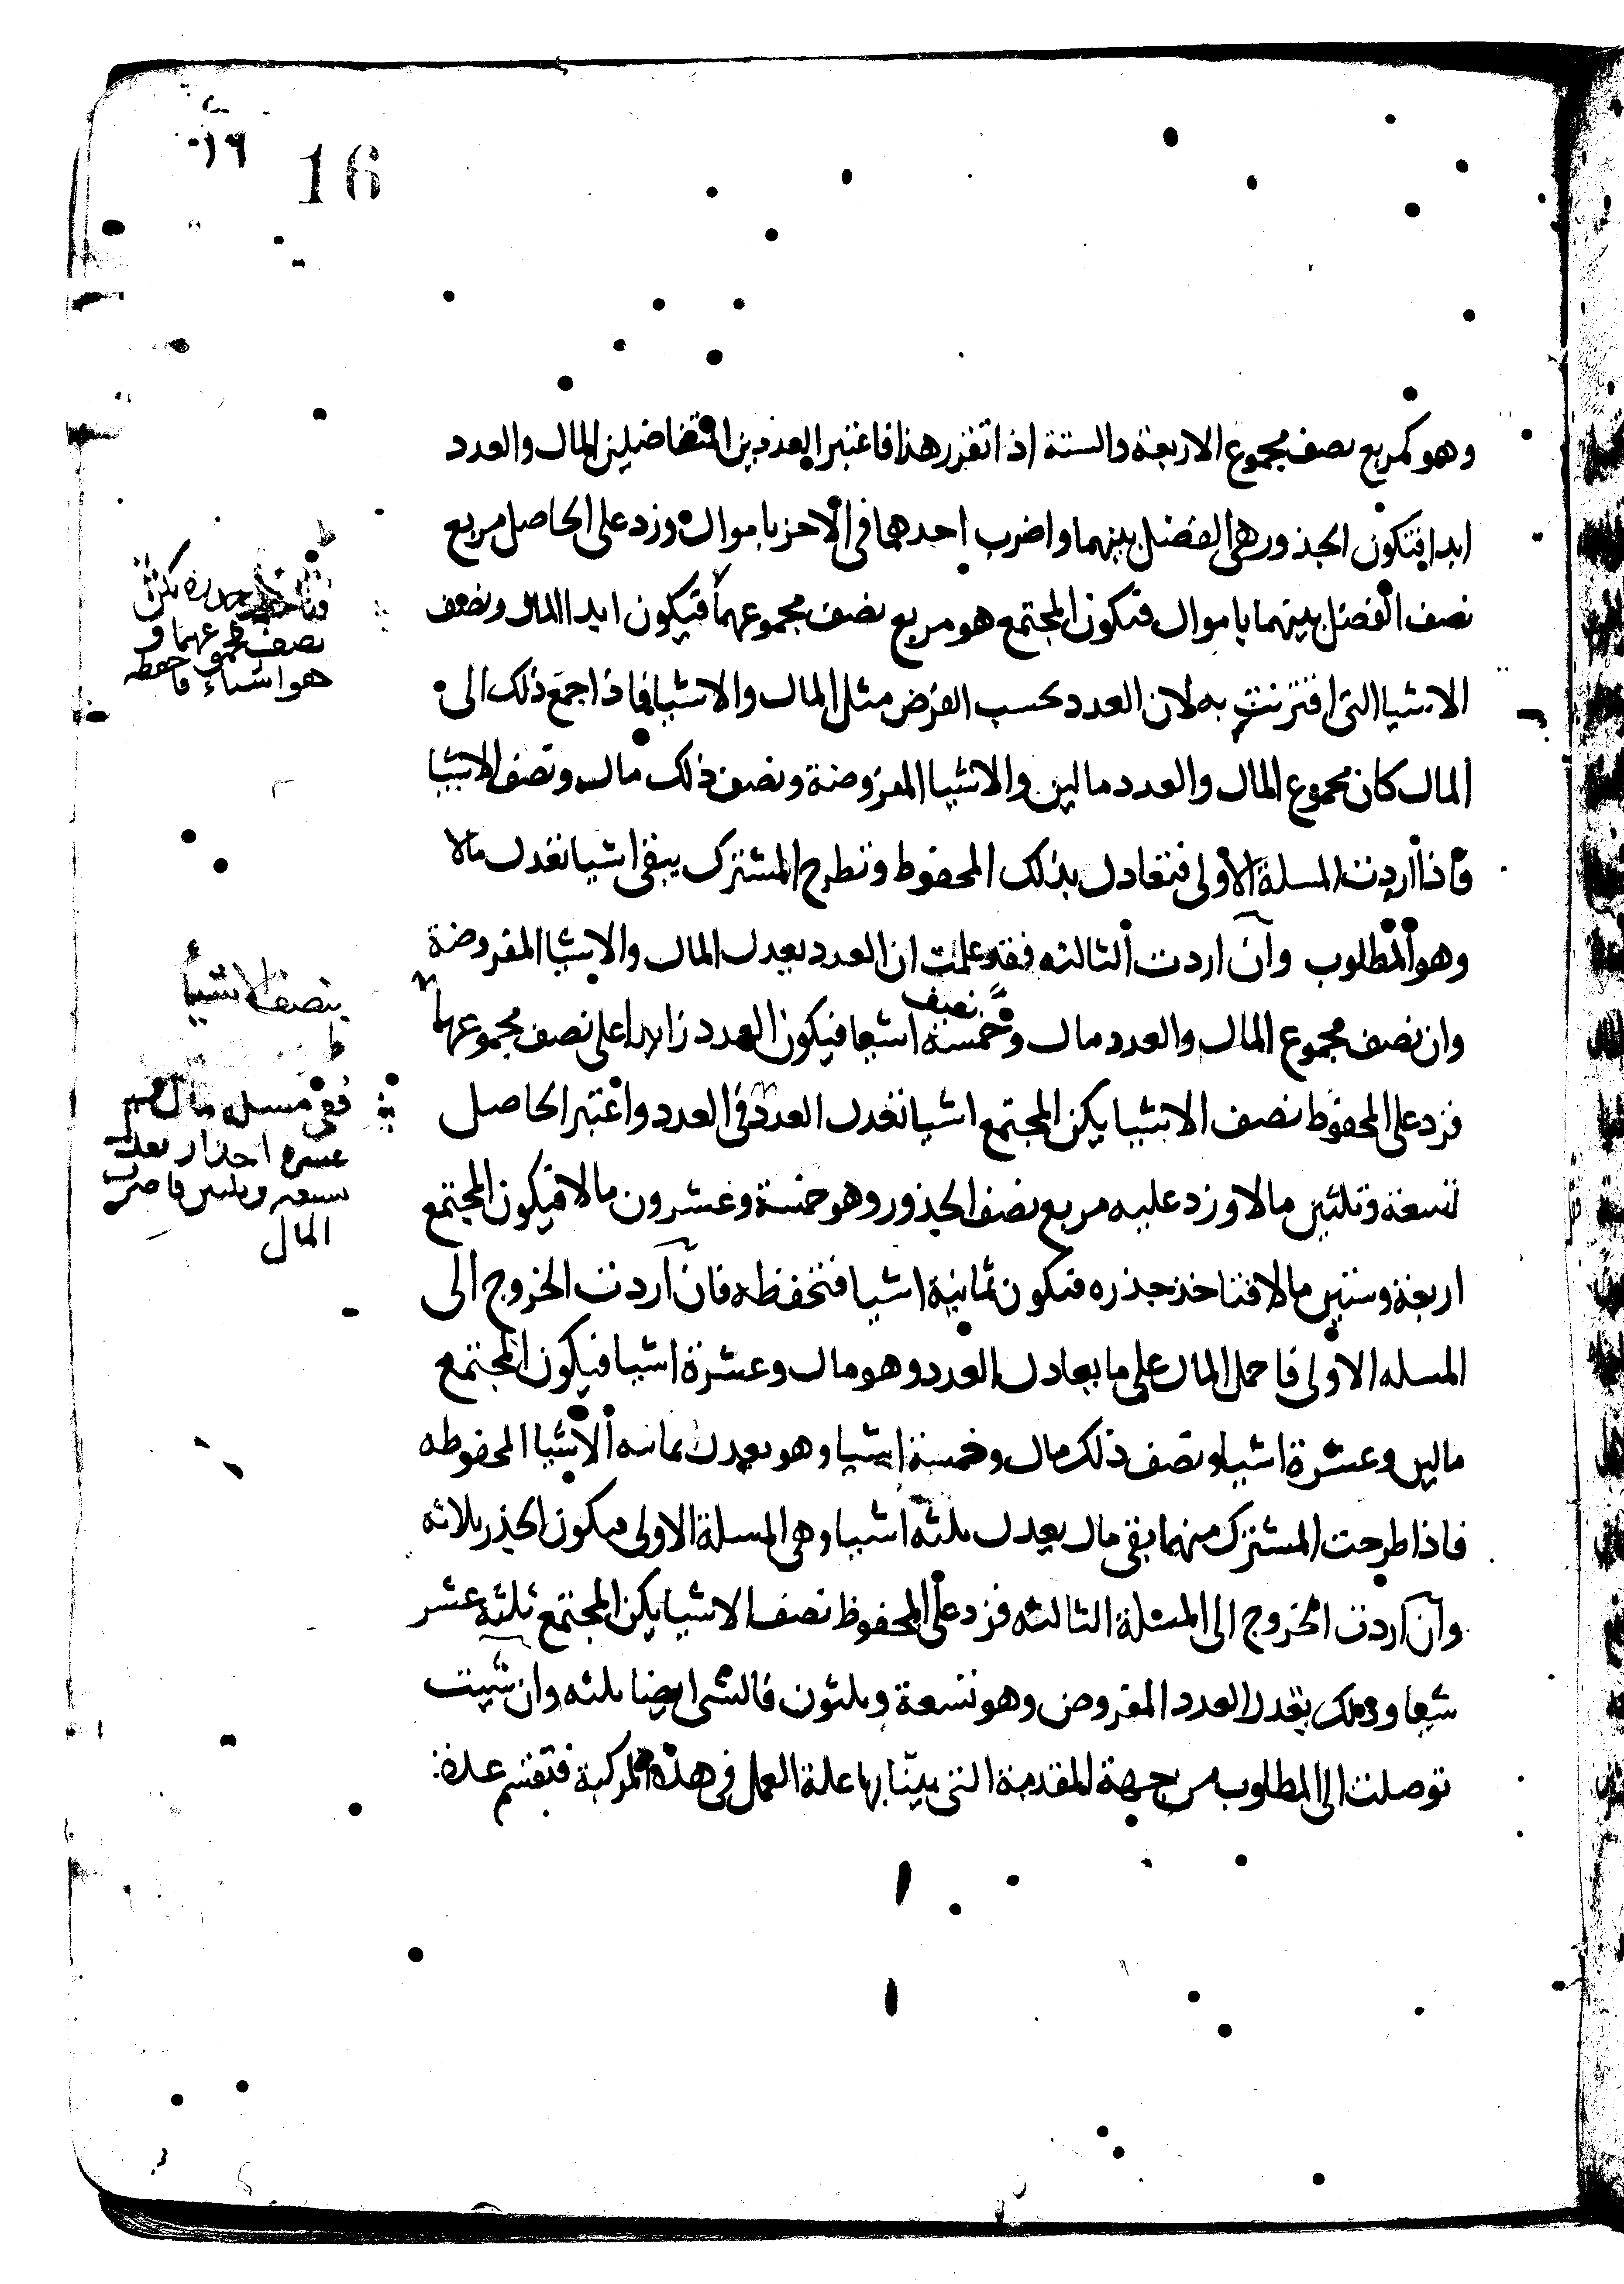 ١٦ 16
وهو كمربع نصف مجموع الاربعة والستة اذا تقرر هذا فاعتبر العددين المتفاضلين المال والعدد
ابدا فتكون الجذور هي الفضل بينهما واضرب احدهما في الاخر باموال وزد على الحاصل مربع
نصف الفضل بينهما باموال فتكون المجتمع هو مربع نصف مجموعهما فتكون ابدا المال ونصف
الاشيا التي اقترنت به لان العدد بحسب الفرض مثل المال والاشيا فاذا جمع ذلك الى
المال كان مجموع المال والعدد مالين والاشيا المفروضة ونصف ذلك مال ونصف الاشيا
فاذا اردت المسلة الاولى فتعادل بذلك المحفوظ وتطرح المشترك يبقى اشيا تعدل مالا
وهو المطلوب وان اردت الثالثه فقد علمت ان العدد يعدل المال والاشيا المفروضة
وان نصف مجموع المال والعدد مال وخمسة اشيا فيكون العدد زايدا على نصف مجموعهما
نصف
فزد على المحفوظ نصف الاشيا يكن المجتمع اشيا تعدل العدد في العدد واعتبر الحاصل
تسعة وثلثين مالا وزد عليه مربع نصف الجذور وهو خمسة وعشرون مالا فيكون المجتمع
اربعة وستين مالا فتاخذ جذره فتكون ثمانية اشيا فتحفظه فان اردت الخروج الى
المسله الاولى فاحمل المال على ما يعادل العدد وهو مال وعشرة اشيا فيكون المجتمع
مالين وعشرة اشيا ونصف ذلك مال وخمسة اشيا وهو يعدل ثمانيه الاشيا المحفوظه
فاذا طرحت المشترك منهما بقى مال يعدل ثلثه اشيا وهي المسلة الاولى فيكون الجذر ثلاثه
وان اردت الخروج الى المسئلة الثالثه فزد على المحفوظ نصف الاشيا يكن المجتمع ثلثة عشر
شيا وذلك يعدل العدد المفروض وهو تسعة وثلثون فالشى ايضا ثلثه وان شيت
توصلت الى المطلوب من جهة المقدمة التي بينا بها علة العمل في هذه المركبة فتقسم عدة
جذره يكن
نصف مجموعهما و
هو اشياء فاحفظه
بنصف الاشيا
ففى مسلة مال
عشرة اجذار تعدل
تسعه وثلثين فاضرب
المال